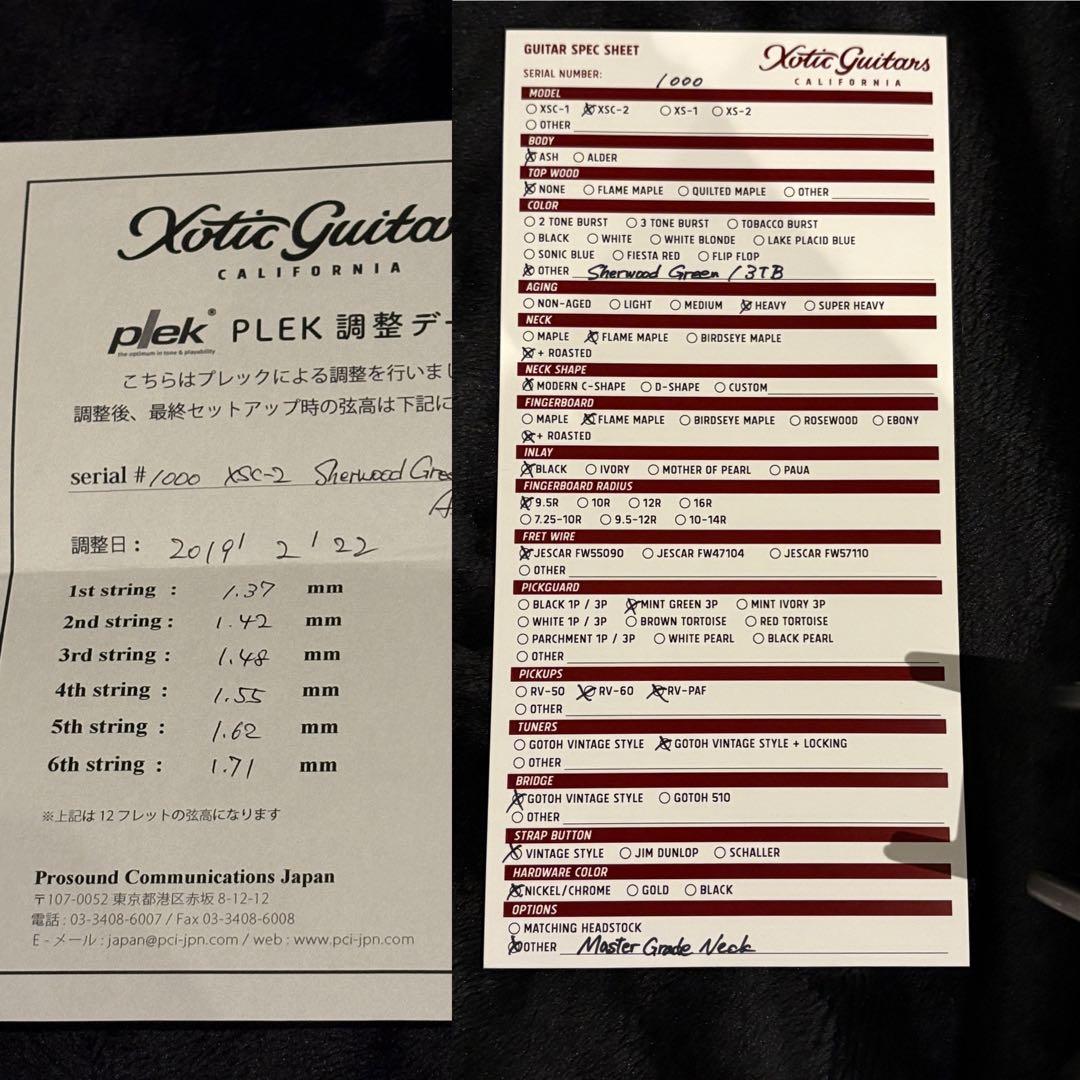 Xotic Guita
CALIFORNIA
plek® PLEK 調整デー
the optimum in tone & playability
こちらはプレックによる調整を行いまし
調整後、最終セットアップ時の弦高は下記に
serial #1000 XSC-2 Sherwood Gree
A
調整日： 2019' 2' 22
1st string : 1.37 mm
2nd string : 1.42 mm
3rd string : 1.48 mm
4th string : 1.55 mm
5th string : 1.62 mm
6th string : 1.71 mm
※上記は12フレットの弦高になります
Prosound Communications Japan
〒107-0052 東京都港区赤坂 8-12-12
電話 : 03-3408-6007 / Fax 03-3408-6008
E - メール : japan@pci-jpn.com / web : www.pci-jpn.com
GUITAR SPEC SHEET
Xotic Guitars
CALIFORNIA
SERIAL NUMBER: 1000
MODEL
XSC-1 XSC-2 XS-1 XS-2
OTHER
BODY
ASH ALDER
TOP WOOD
NONE FLAME MAPLE QUILTED MAPLE OTHER
COLOR
2 TONE BURST 3 TONE BURST TOBACCO BURST
BLACK WHITE WHITE BLONDE LAKE PLACID BLUE
SONIC BLUE FIESTA RED FLIP FLOP
OTHER Sherwood Green / 3TB
AGING
NON-AGED LIGHT MEDIUM HEAVY SUPER HEAVY
NECK
MAPLE FLAME MAPLE BIRDSEYE MAPLE
+ ROASTED
NECK SHAPE
MODERN C-SHAPE D-SHAPE CUSTOM
FINGERBOARD
MAPLE FLAME MAPLE BIRDSEYE MAPLE ROSEWOOD EBONY
+ ROASTED
INLAY
BLACK IVORY MOTHER OF PEARL PAUA
FINGERBOARD RADIUS
9.5R 10R 12R 16R
7.25-10R 9.5-12R 10-14R
FRET WIRE
JESCAR FW55090 JESCAR FW47104 JESCAR FW57110
OTHER
PICKGUARD
BLACK 1P / 3P MINT GREEN 3P MINT IVORY 3P
WHITE 1P / 3P BROWN TORTOISE RED TORTOISE
PARCHMENT 1P / 3P WHITE PEARL BLACK PEARL
OTHER
PICKUPS
RV-50 RV-60 RV-PAF
OTHER
TUNERS
GOTOH VINTAGE STYLE GOTOH VINTAGE STYLE + LOCKING
OTHER
BRIDGE
GOTOH VINTAGE STYLE GOTOH 510
OTHER
STRAP BUTTON
VINTAGE STYLE JIM DUNLOP SCHALLER
HARDWARE COLOR
NICKEL/CHROME GOLD BLACK
OPTIONS
MATCHING HEADSTOCK
OTHER Master Grade Neck